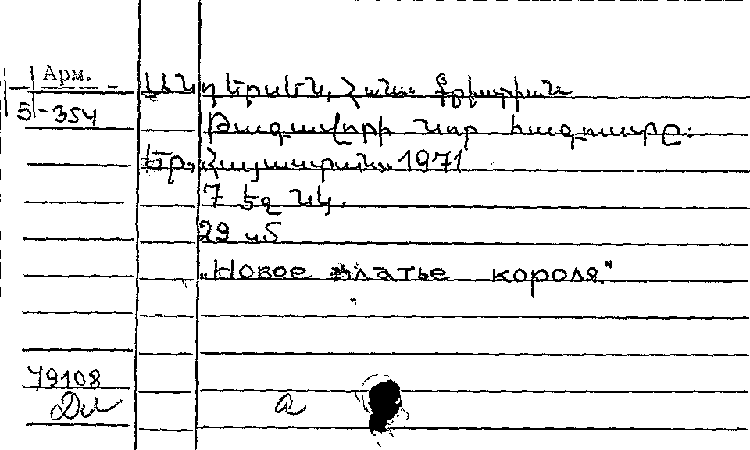 Арм. Անդերսեն, Հանս Քրիստիան
5-354
Թագավորի նոր հագուստը:
Եր., Հայաստան, 1971
7 եզ նկ.
29 սմ
„Новое платье короля."
79108
а